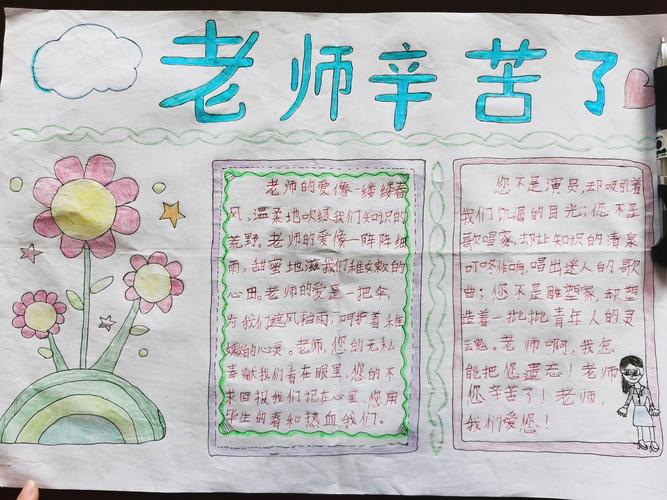 老师辛苦了
老师的爱像一缕缕春
风,温柔地吹绿我们知识的
荒野。老师的爱像一阵阵细
雨,甜蜜地滋我们稚嫩的
心田。老师的爱是一把伞,
为我们遮风挡雨,呵护着稚
嫩的心灵。老师,您的无私
奉献我们看在眼里,您的不
求回报我们记在心里,您用
毕生的春和热血我们。
您不是演员,却吸引着
我们饥渴的目光;您不是
歌唱家,却让知识的清泉
叮咚作响,唱出迷人的歌
曲;您不是雕塑家,却塑
造着一批批青年人的灵
魂。老师啊,我怎
能把您遗忘!老师
您辛苦了!老师,
我们爱您!